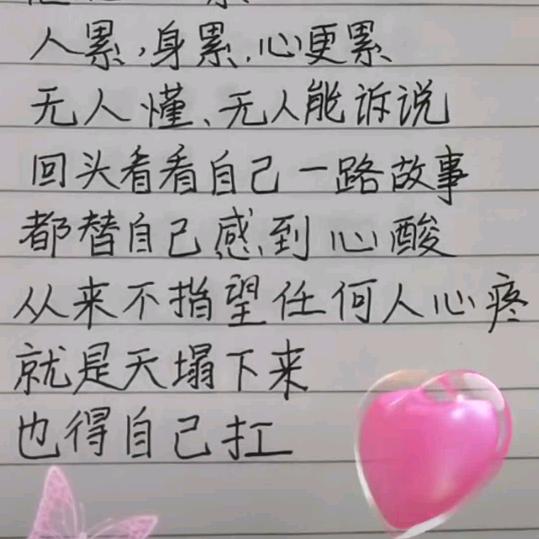 人累,身累,心更累
无人懂、无人能诉说
回头看看自己一路故事
都替自己感到心酸
从来不指望任何人心疼
就是天塌下来
也得自己扛